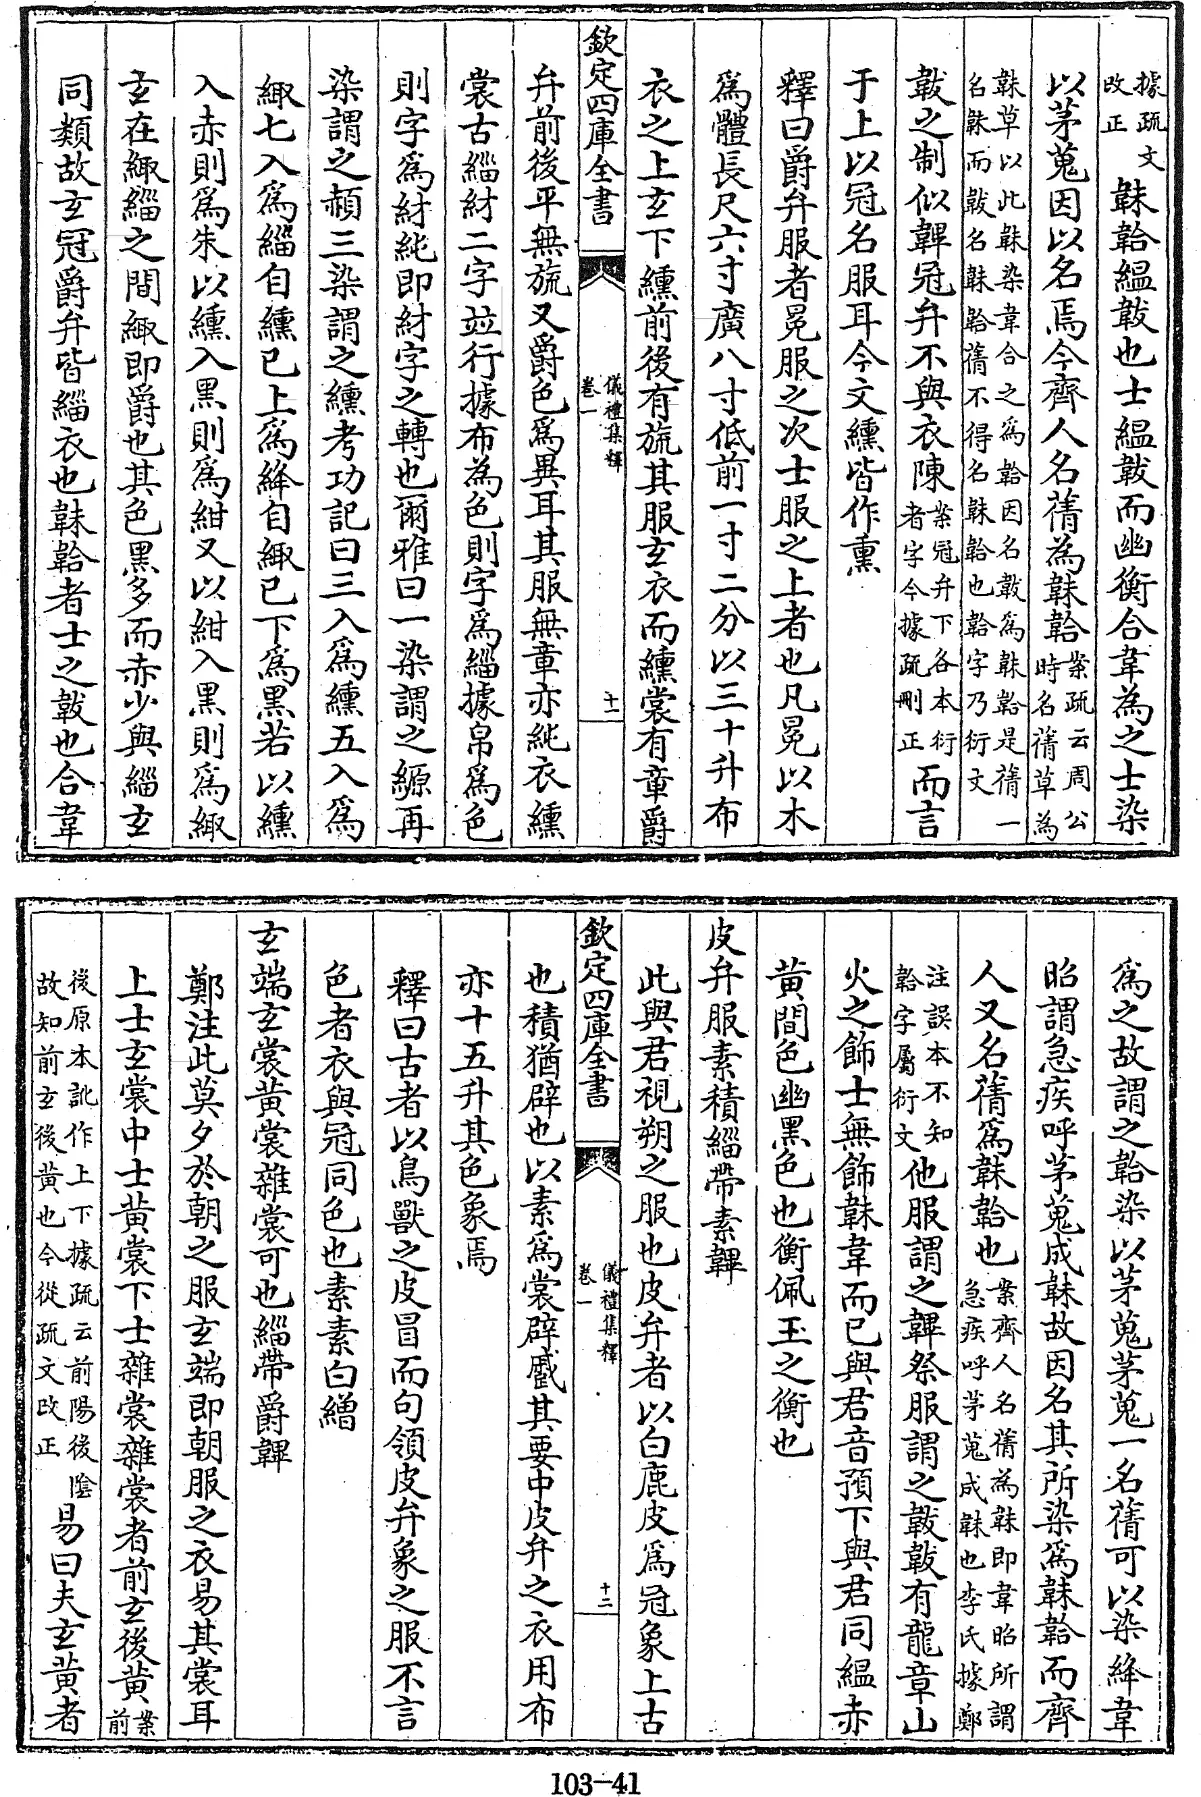 據疏文改正韎韐緼韍也士緼韍而幽衡合韋為之士染
以茅蒐因以名焉今齊人名蒨為韎韐案疏云周公時名蒨草為
韎草以此韎染韋合之為韐因名韍為韎韐是蒨一名韎而韍名韎韐蒨不得名韎韐也韐字乃衍文
韍之制似韠冠弁不與衣陳案冠弁下各本衍者字今據疏刪正而言
于上以冠名服耳今文纁皆作熏
釋曰爵弁服者冕服之次士服之上者也凡冕以木
為體長尺六寸廣八寸低前一寸二分以三十升布
衣之上玄下纁前後有旒其服玄衣而纁裳有章爵
欽定四庫全書
儀禮集釋
卷一
十一
弁前後平無旒又爵色為異耳其服無章亦純衣纁
裳古緇紂二字並行據布為色則字為緇據帛為色
則字為紂純即紂字之轉也爾雅曰一染謂之縓再
染謂之赬三染謂之纁考功記曰三入為纁五入為
緅七入為緇自纁已上為絳自緅已下為黑若以纁
入赤則為朱以纁入黑則為紺又以紺入黑則為緅
玄在緅緇之間緅即爵也其色黑多而赤少與緇玄
同類故玄冠爵弁皆緇衣也韎韐者士之韍也合韋
為之故謂之韐染以茅蒐茅蒐一名蒨可以染絳韋
昭謂急疾呼茅蒐成韎故因名其所染為韎韐而齊
人又名蒨為韎韐也案齊人名蒨為韎即韋昭所謂急疾呼茅蒐成韎也李氏據鄭
注誤本不知韐字屬衍文他服謂之韠祭服謂之韍韍有龍章山
火之飾士無飾韎韋而已與君音預下與君同緼赤
黃間色幽黑色也衡佩玉之衡也
皮弁服素積緇帶素韠
此與君視朔之服也皮弁者以白鹿皮為冠象上古
欽定四庫全書
儀禮集釋
卷一
十二
也積猶辟也以素為裳辟蹙其要中皮弁之衣用布
亦十五升其色象焉
釋曰古者以鳥獸之皮冒而句領皮弁象之服不言
色者衣與冠同色也素素白繒
玄端玄裳黃裳雜裳可也緇帶爵韠
鄭注此莫夕於朝之服玄端即朝服之衣易其裳耳
上士玄裳中士黃裳下士雜裳雜裳者前玄後黃案前
後原本訛作上下據疏云前陽後陰故知前玄後黃也今從疏文改正易曰夫玄黃者
103-41